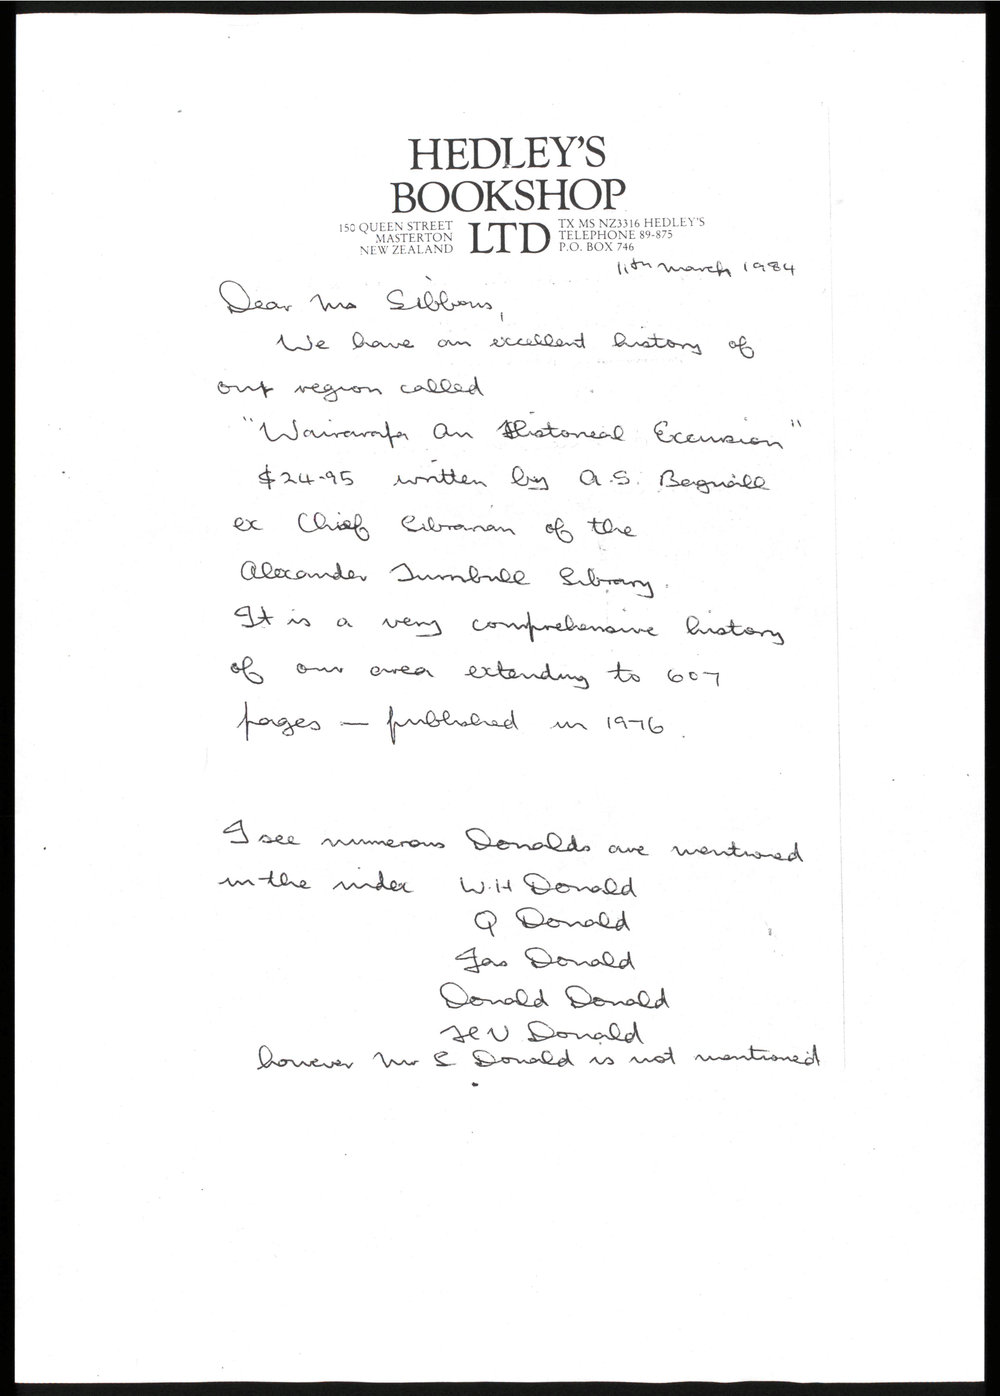 HEDLEY'S
BOOKSHOP
LTD
150 QUEEN STREET
MASTERTON
NEW ZEALAND
TX MS NZ3316 HEDLEY'S
TELEPHONE 89-875
P.O. BOX 746
11th March 1984
Dear Ms Gibbons,
We have an excellent history of
our region called
"Wairarapa An Historical Excursion"
$24-95 written by A.S. Bagnall
ex Chief Librarian of the
Alexander Turnbull Library.
It is a very comprehensive history
of our area extending to 607
pages — published in 1976.
I see numerous Donalds are mentioned
in the index W.H Donald
Q Donald
Jas Donald
Donald Donald
Donald
however Mr Donald is not mentioned